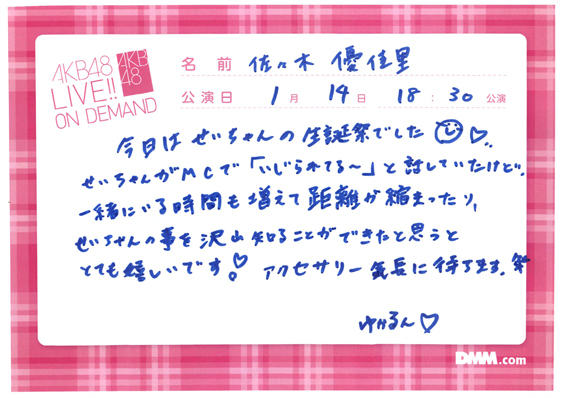 AKB48
LIVE!!
ON DEMAND
AKB
48
名前 佐々木 優佳里
公演日 1月 14日 18:30公演
今日はせいちゃんの生誕祭でした
せいちゃんがMCで「いじられてる〜」と話していたけど、
一緒にいる時間も増えて距離が縮まったり、
せいちゃんの事を沢山知ることができたと思うと
とても嬉しいです♡ アクセサリー気長に待ってます。笑
ゆかるん♡
DMM.com